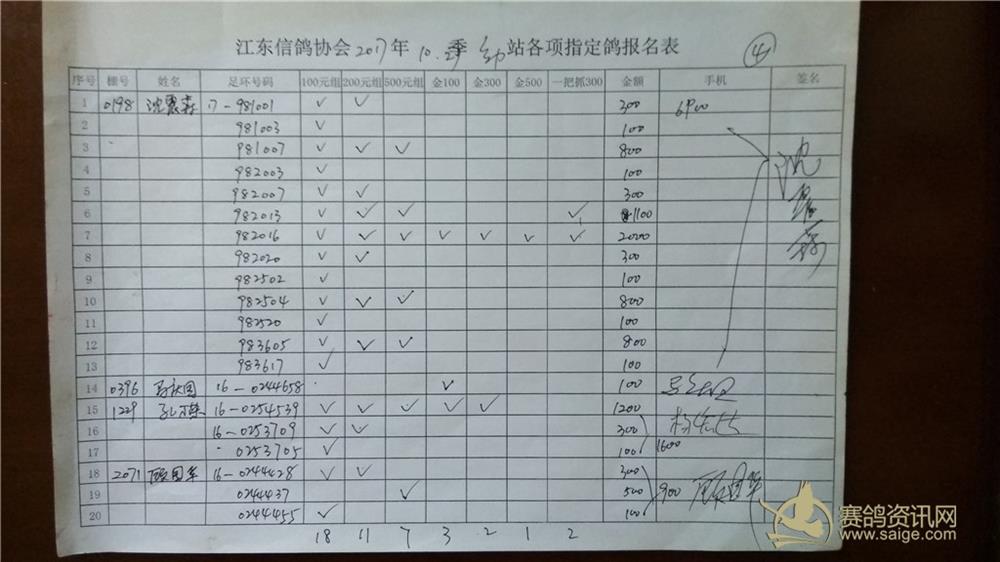 江东信鸽协会2017年10.29季 幼站各项指定鸽报名表 ④
序号 棚号 姓名 足环号码 100元组 200元组 500元组 金100 金300 金500 一把抓300 金额 手机 签名
1 0198 沈震森 17-981001 √ √ 300 6900
2 981003 √ 100
3 981007 √ √ √ 800
4 982003 √ 100
5 982007 √ √ 300
6 982013 √ √ √ √ 1100
7 982016 √ √ √ √ √ √ √ 2000
8 982020 √ √ 300
9 982502 √ 100
10 982504 √ √ √ 800
11 982520 √ 100
12 983605 √ √ √ 800
13 983617 √ 100
14 0396 16-0244658 √ 100
15 1229 16-0254539 √ √ √ √ √ 1200
16 16-0253709 √ √ 300
17 0253705 √ 100 1600
18 2071 顾国华 16-0244428 √ √ 300
19 0244437 √ 500 900 顾国华
20 0244455 √ 100
18 11 7 3 2 1 2
赛鸽资讯网
www.saige.com